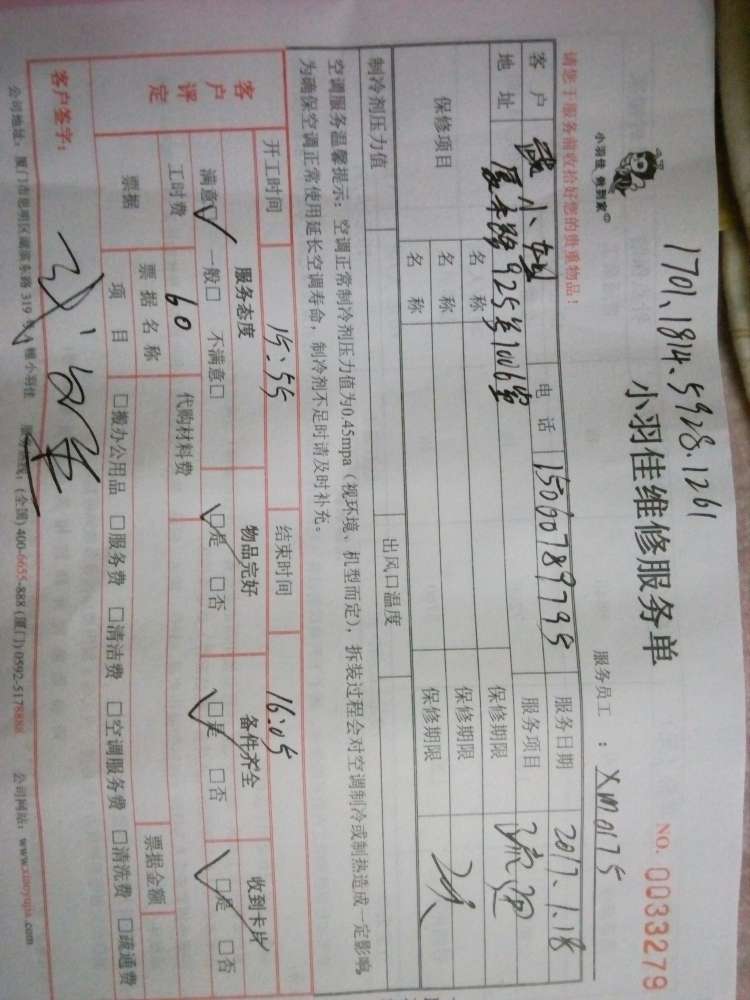 1701.1814.5928.1261
小羽佳 贵到家
小羽佳维修服务单
NO. 0033279
服务员工：XM0175
请您于服务前收拾好您的贵重物品！
客户 小 电话 15060789795 服务日期 2017.1.18
地址 厦禾路925号1006室 服务项目
保修项目 名称 保修期限
名称 保修期限
名称 保修期限
制冷剂压力值 出风口温度
空调服务温馨提示：空调正常制冷剂压力值为0.45mpa（视环境、机型而定），拆装过程会对空调制冷或制热造成一定影响，
为确保空调正常使用延长空调寿命，制冷剂不足时请及时补充。
开工时间 15:55 结束时间 16:05
客户评定 服务态度 物品完好 备件齐全 收到卡片
满意□ ✓ 一般□ 不满意□ □是 ✓ □否 □是 ✓ □否 □是 ✓ □否
工时费 60 代购材料费
票据 票据名称 票据金额
项目 □搬办公用品 □服务费 □清洁费 □空调服务费 □清洗费 □疏通费
客户签字：
公司地址：厦门市思明区湖滨东路319号 楼小羽佳 服务热线：(全国)400-6655-888 (厦门)0592-5178888 公司网站：www.xiaoyujia.com